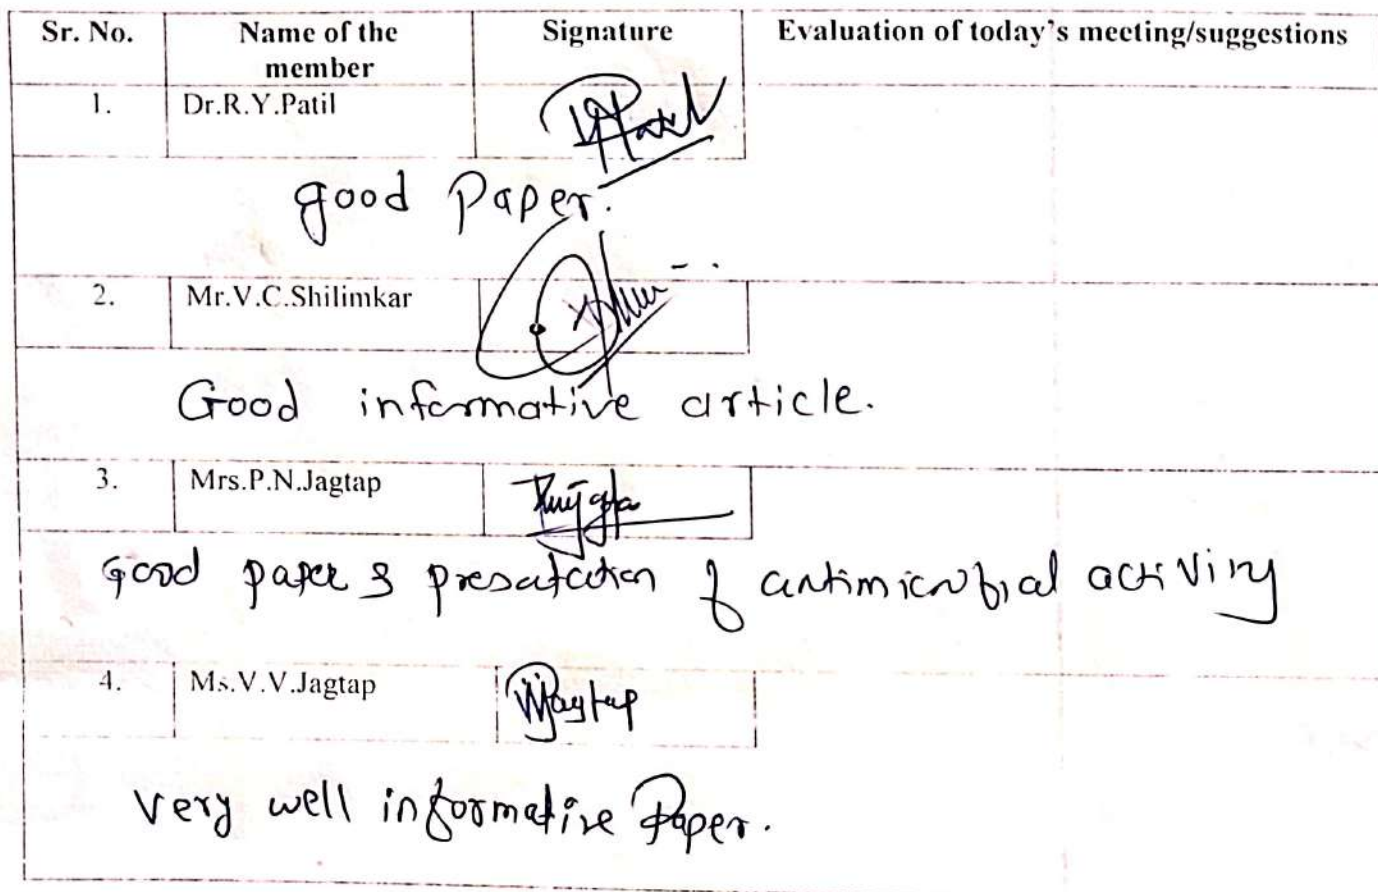 Sr. No. Name of the Signature Evaluation of today's meeting/suggestions
member
1. Dr.R.Y.Patil
good Paper.
2. Mr.V.C.Shilimkar
Good informative article.
3. Mrs.P.N.Jagtap
Good paper & presentation of antimicrobial activity
4. Ms.V.V.Jagtap VVJagtap
Very well informative Paper.